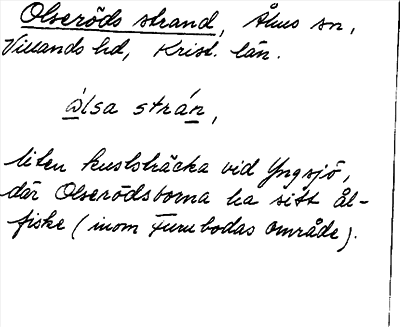 Olseröds strand, Åhus sn,
Villands hd, Krist. län.
ὼlsa strán,
liten kuststräcka vid Yngsjö,
där Olserödsborna ha sitt ål-
fiske (inom Furubodas område).